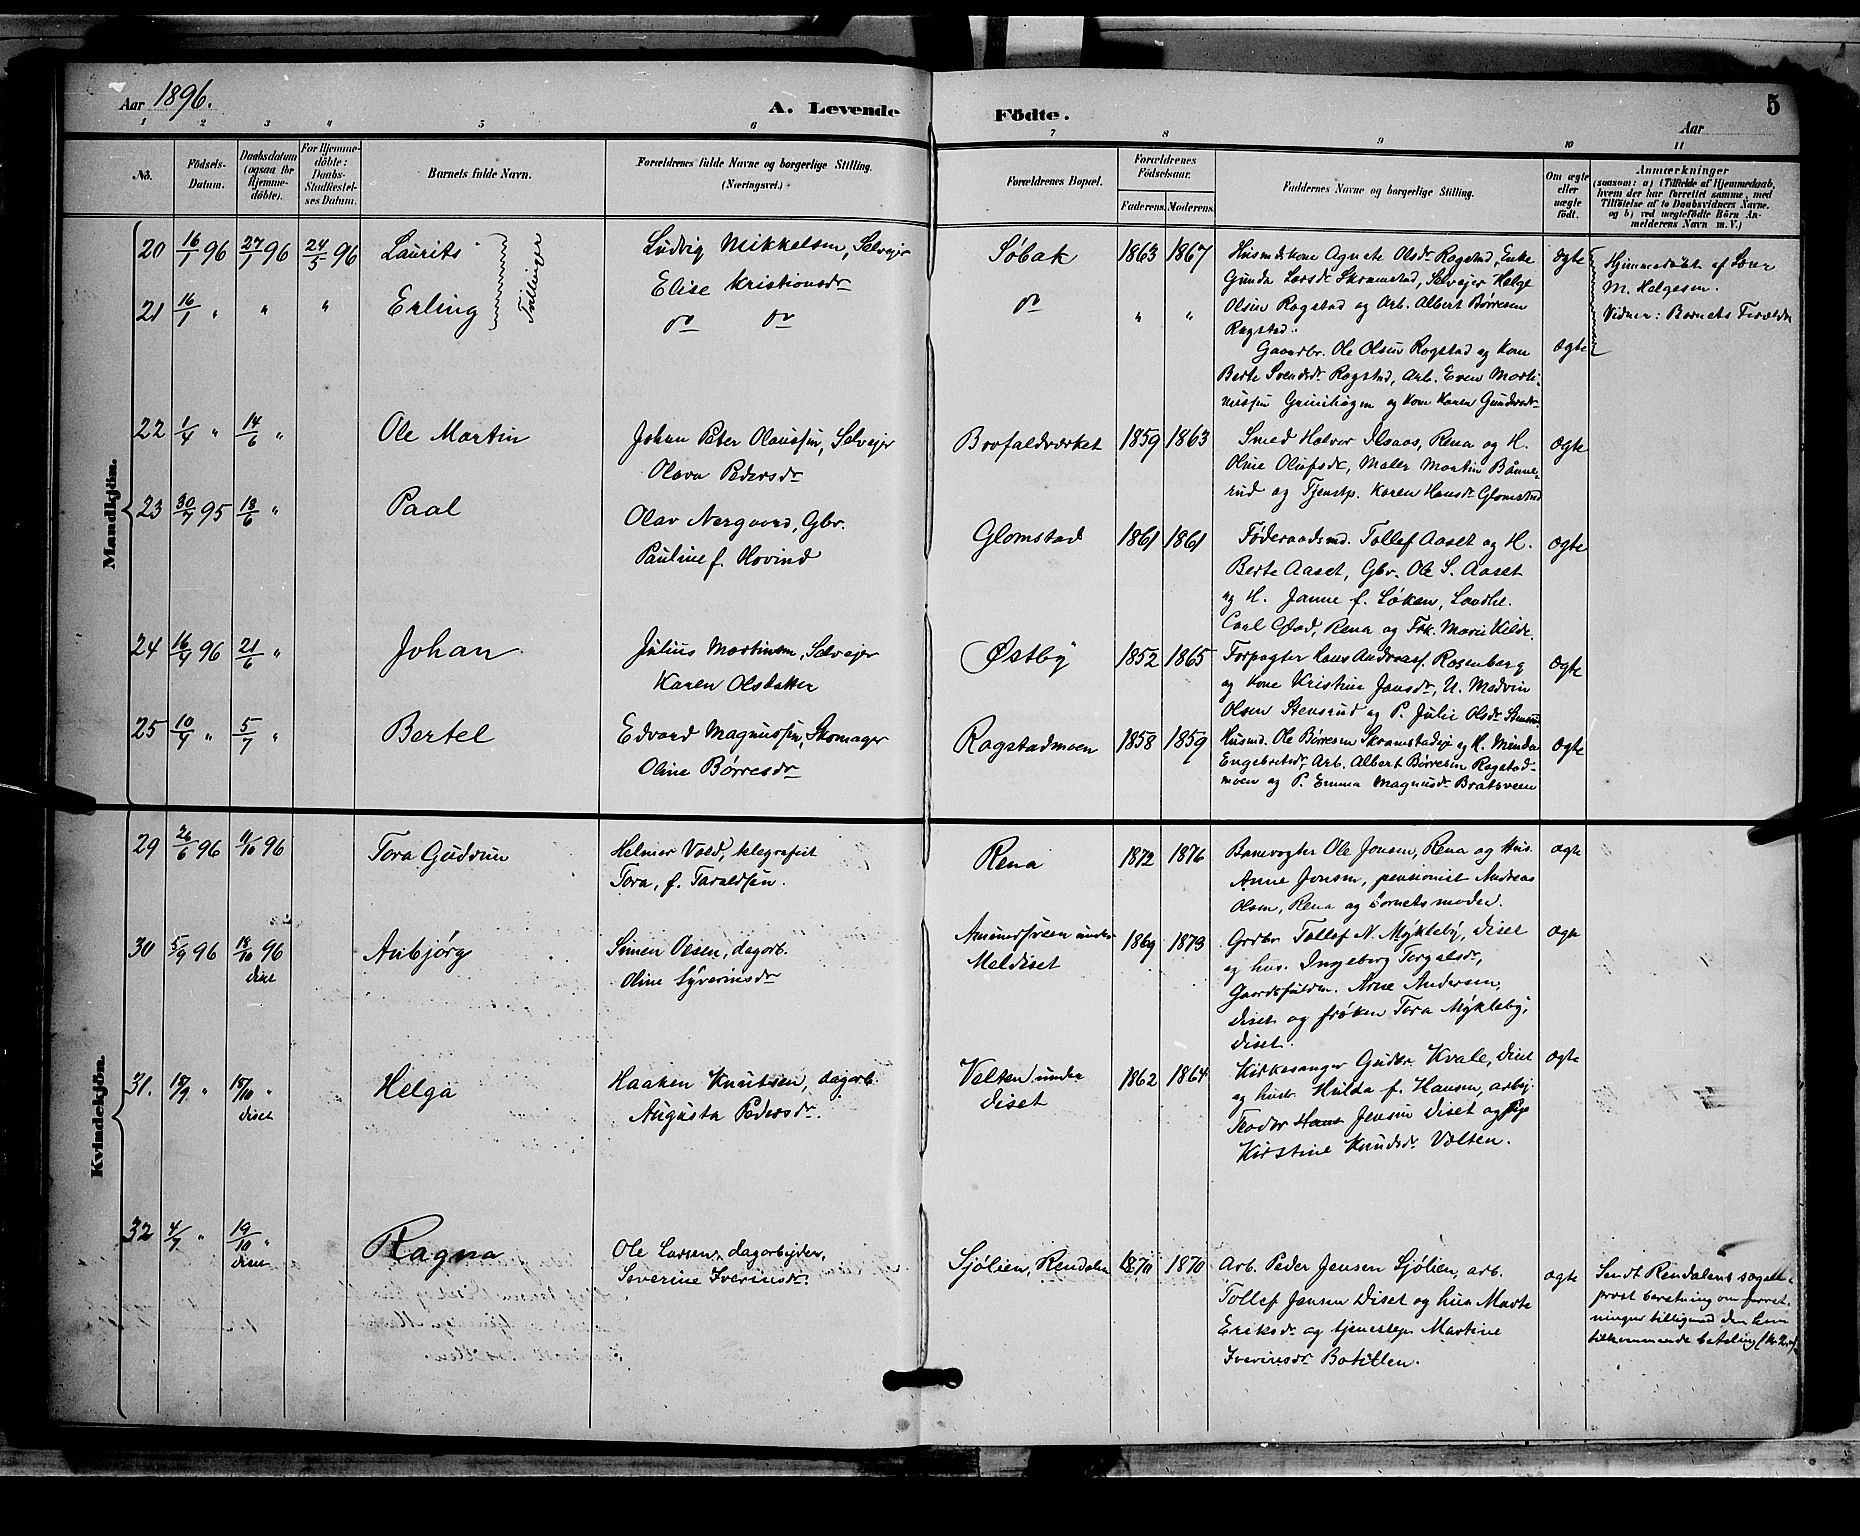 Aar 1896.
A. Levende Födte.
5
Aar
1 2 3 4 5 6 7 8 9 10 11
No.
Födsels-Datum.
Daabsdatum (ogsaa for Hjemme-döbte).
For Hjemme-döbte: Daabs-Stadfæstel-ses Datum.
Barnets fulde Navn.
Forældrenes fulde Navne og borgerlige Stilling. (Næringsvei.)
Forældrenes Bopæl.
Forældrenes Födselsaar.
Faderens. Moderens.
Faddernes Navne og borgerlige Stilling.
Om ægte eller uægte födt.
Anmærkninger
(saasom: a) i Tilfælde af Hjemmedaab, hvem der har forrettet samme, med Tilföielse af to Daabsvidners Navne. og b) ved uægtefödte Börn Anmelderens Navn m. V.)
Mandkjön.
20 16/1 96 27/1 96 24/5 96 Laurits Tvillinger Ludvig Mikkelsen, Selvejer
Elise Kristiansdr
Søbak 1863 1867 Husmdskone Agnete Olsdr Rogstad, Enke
Gunda Larsdr Skramstad, Selvejer Helge
Olsen Rogstad og Arb. Albert Børresen
Rogstad.
ægte
Hjemmedøbt af Lars
M. Helgesen.
Vidner: Barnets Forældre
21 16/1 " " " Erling do do
do " "
Gaardbr. Ole Olsen Rogstad og Kone
Berte Svendsdr Rogstad, Arb. Even Marti-
nussen Grinihagen og Kone Karen Gundersdr
ægte
22 1/4 " 14/6 " Ole Martin Johan Peter Olaussen, Selvejer
Olava Pedersdr
Brofaldværket 1859 1863 Smed Halvor Ilsaas, Rena og H.
Oline Olufsdr, Maler Martin Bånne-
rud og Tjenstp. Karen Hansdr Glomstad
ægte
23 30/7 95 18/6 " Paal Olav Nergaard, Gbr.
Pauline f. Hovind
Glomstad 1861 1861 Føderaadsmd. Tollef Aaset og H.
Berte Aaset, Gbr. Ole S. Aaset
og H. Janne f. Løken, Landhl.
Carl Estad, Rena og Frk. Marie Kilde.
ægte
24 16/4 96 21/6 " Johan Julius Martinsen, Selvejer
Karen Olsdatter
Østby 1852 1865 Forpagter Hans Andreasf. Rosenberg
og Kone Kristine Jansdr, U. Medvin
Olsen Stensrud og P. Julie Olsdr Stensrud
ægte
25 10/4 " 5/7 " Bertel Edvard Magnussen, Skomager
Oline Børresdr
Rogstadmoen 1858 1859 Husmd. Ole Børresen Skramstadeje og H. Minda
Engebretsdr, Arb. Albert Børresen Rogstad-
moen og P. Emma Magnusdr Bratsveen
ægte
Kvindekjön.
29 26/6 96 11/10 96 Tora Gudrun Helmer Vold, telegrafist
Tora, f. Taraldsen.
Rena 1872 1876 Banevogter Ole Jonsen, Rena og Hus.
Anne Jonsen, pensionist Andreas
Olsen, Rena og barnets moder.
ægte
30 5/9 96 18/10 96 Diset Anbjørg Simen Olsen, dagarb.
Oline Syverinsdr
under
Meldiset 1869 1873 Grdbr. Tollef N. Mykleby, Diset
og hus. Ingeborg Torgalsdr,
Gaardsfuldm. Arne Andersen,
Diset og frøken Tora Mykleby,
Diset.
ægte
31. 15/9 " 18/10 " Diset Helga Haaken Knutsen, dagarb.
Augusta Pedersdr.
Velten under
Diset 1862 1864 Kirkesanger Gudbr. Kvale, Diset
og hustr. Hulda f. Hansen, arbej.
Teodor Hans Jensen Diset og Pige
Kirstine Knudsdr Velten.
ægte
32 4/7 " 19/10 " Diset Ragna Ole Larsen, dagarbejder,
Severine Iverinsdr.
Sjølien, Rendalen 1870 1870 Arb. Peder Jensen Sjølien, arb.
Tollef Jansen Diset og hus Marte
Eriksdr og tjenestepi. Martine
Iverinsdr Botillen.
ægte
Sendt Rendalens sogne-
prest beretning om forret-
ningen tilligemed den ham
tilkommende betaling (kr. 2.00).